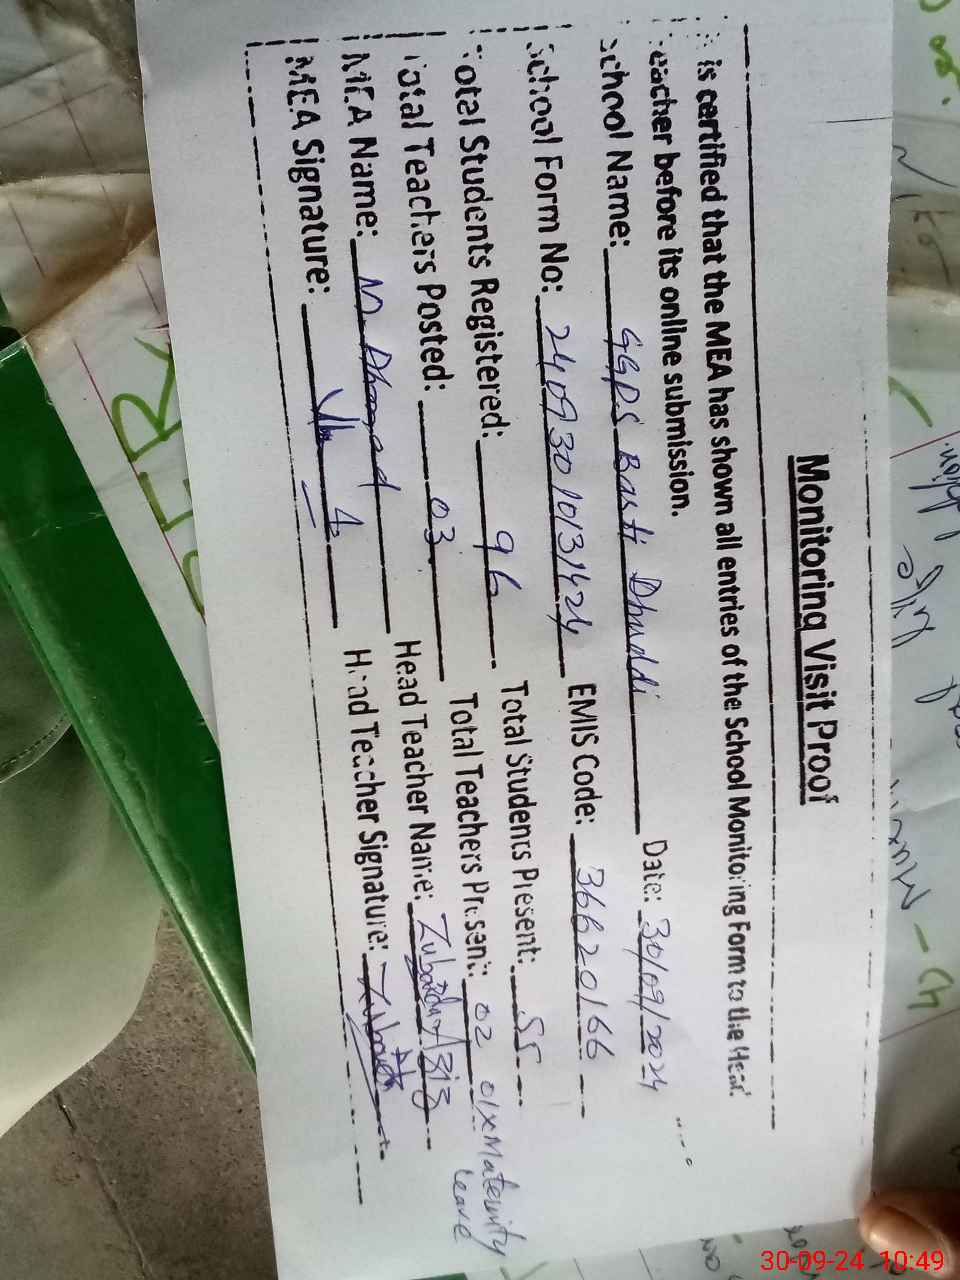 Monitoring Visit Proof
is certified that the MEA has shown all entries of the School Monitoring Form to the Head
Teacher before its online submission.
School Name: GGPS Basti Dhuddi Date: 30/09/2024
School Form No: 24093010131424 EMIS Code: 36620166
Total Students Registered: 96 Total Students Present: 55
Total Teachers Posted: 03 Total Teachers Present: 02 01xMaternity Leave
MEA Name: M. Head Teacher Name: Zubaida Aziz
MEA Signature: Head Teacher Signature:
30-09-24 10:49